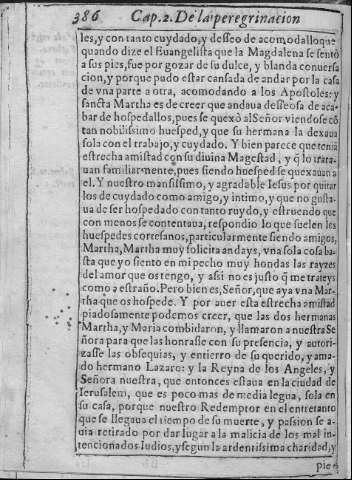 386 Cap. 2. De la peregrinacion
les, y con tanto cuydado, y desseo de acomodallo que
quando dize el Euangelista que la Magdalena se sentò
a sus pies, fue por gozar de su dulce, y blanda conuersa
cion, y porque pudo estar cansada de andar por la casa
de vna parte a otra, acomodando a los Apostoles: y
sancta Martha es de creer que andaua desseosa de aca-
bar de hospedallos, pues se quexò al Señor viendose cō
tan nobilissimo huesped, y que su hermana la dexaua
sola con el trabajo, y cuydado. Y bien parece que tenia
estrecha amistad con su diuina Magestad, y q̄ lo trata-
uan familiarmente, pues siendo huesped se quexauan a
el. Y nuestro mansissimo, y agradable Iesus por quitar
los de cuydado como amigo, y intimo, y que no gusta-
ua de ser hospedado con tanto ruydo, y estruendo que
con menos se contentaua, respondio lo que suelen los
huespedes cortesanos, particularmente siendo amigos,
Martha, Martha muy solicita andays, vna sola cosa bas
ta que yo siento en mi pecho muy hondas las rayzes
del amor que os tengo, y assi no es justo q̄ me trateys
como a estraño. Pero bien es, Señor, que aya vna Mar-
tha que os hospede. Y por auer esta estrecha amistad
piadosamente podemos creer, que las dos hermanas
Martha, y Maria combidaron, y llamaron a nuestra Se
ñora para que las honrasse con su presencia, y autori-
zasse las obsequias, y entierro de su querido, y ama-
do hermano Lazaro: y la Reyna de los Angeles, y
Señora nuestra, que entonces estaua en la ciudad de
Ierusalem, que es poco mas de media legua, sola en
su casa, porque nuestro Redemptor en el entretanto
que se llegaua el tiempo de su muerte, y passion se a-
uia retirado por dar lugar a la malicia de los mal in-
tencionados Iudios, y segun la ardentissima charidad, y
pie